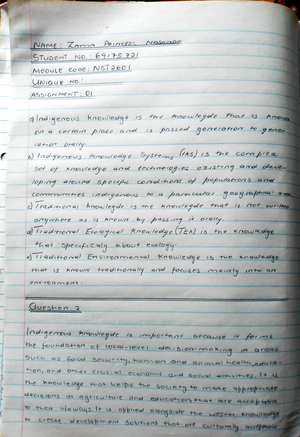 NAME: Zama Princess
STUDENT NO: 69175721
MODULE CODE: NST2601
UNIQUE NO:
ASSIGNMENT: 01
a) Indigenous knowledge is the knowlegde that is known
on a certain place and is passed generation to gene-
ration orally.
b) Indigenous Knowledge Systems (IKS) is the complex
set of knowledge and technologies existing and deve-
loping around specific conditions of populations and
communities indigenous to a particular geographical area
c) Traditional knowlegde is the knowlegde that is not written
anywhere as is known by passing it orally.
d) Traditional Ecological Knowledge (TEK) is the knowledge
that specificaly about ecology.
e) Traditional Environmental Knowledge is the knowledge
that is known traditionally and focuses mainly into an
environment.
Question 2
Indigenous knowlegde is important because it forms
the foundation of local-level decision-making in areas
such as food security, human and animal health, educa-
tion, and other crucial economic and social activities. It is
the knowledge that helps the society to make appropriate
decisions in agriculture and education that are acceptable
to their lifeways. It is applied alongside the western knowledge
to create development solutions that are culturally acceptable